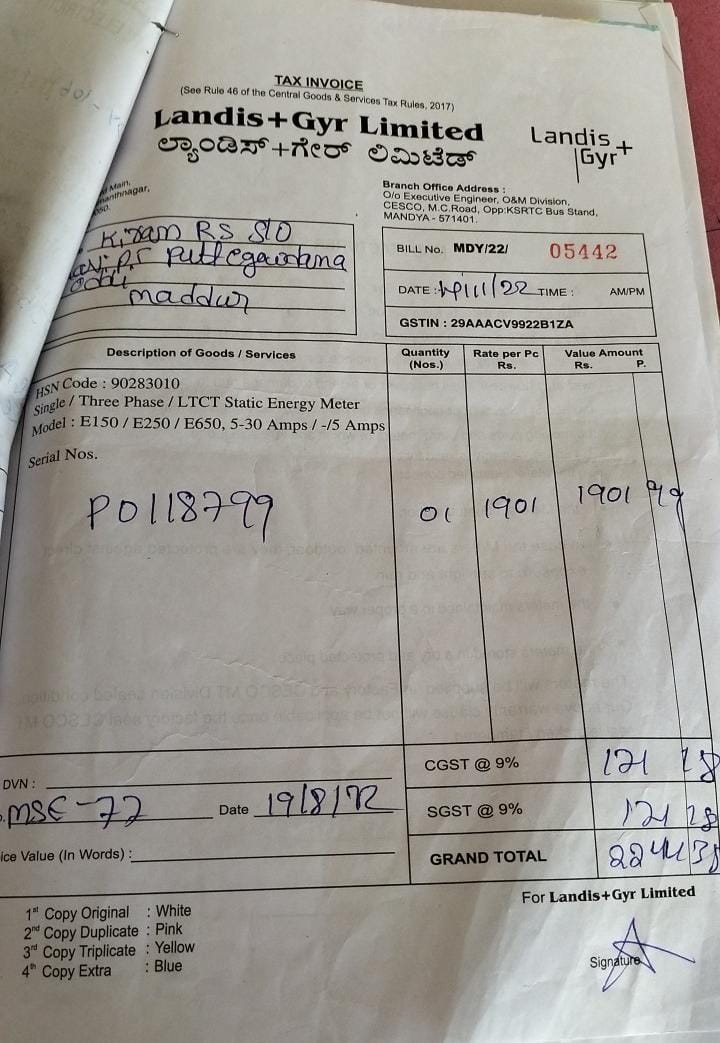 TAX INVOICE
(See Rule 46 of the Central Goods & Services Tax Rules, 2017)
Landis+Gyr Limited
ಲ್ಯಾಂಡಿಸ್+ಗೇರ್ ಲಿಮಿಟೆಡ್
Landis+
Gyr
Main,
Branch Office Address :
O/o Executive Engineer, O&M Division,
CESCO, M.C.Road, Opp:KSRTC Bus Stand,
MANDYA - 571401.
Kiran RS S/O
maddur
BILL No. MDY/22/ 05442
DATE : /11/22 TIME : AM/PM
GSTIN : 29AAACV9922B1ZA
Description of Goods / Services Quantity (Nos.) Rate per Pc Rs. Value Amount Rs. P.
HSN Code : 90283010
Single / Three Phase / LTCT Static Energy Meter
Model : E150 / E250 / E650, 5-30 Amps / -/5 Amps
Serial Nos.
P0118799 01 1901 1901
CGST @ 9% 171 18
DVN :
Date 19/8/22
SGST @ 9% 171 18
ice Value (In Words) :
GRAND TOTAL 2244
For Landis+Gyr Limited
1st Copy Original : White
2nd Copy Duplicate : Pink
3rd Copy Triplicate : Yellow
4th Copy Extra : Blue
Signature